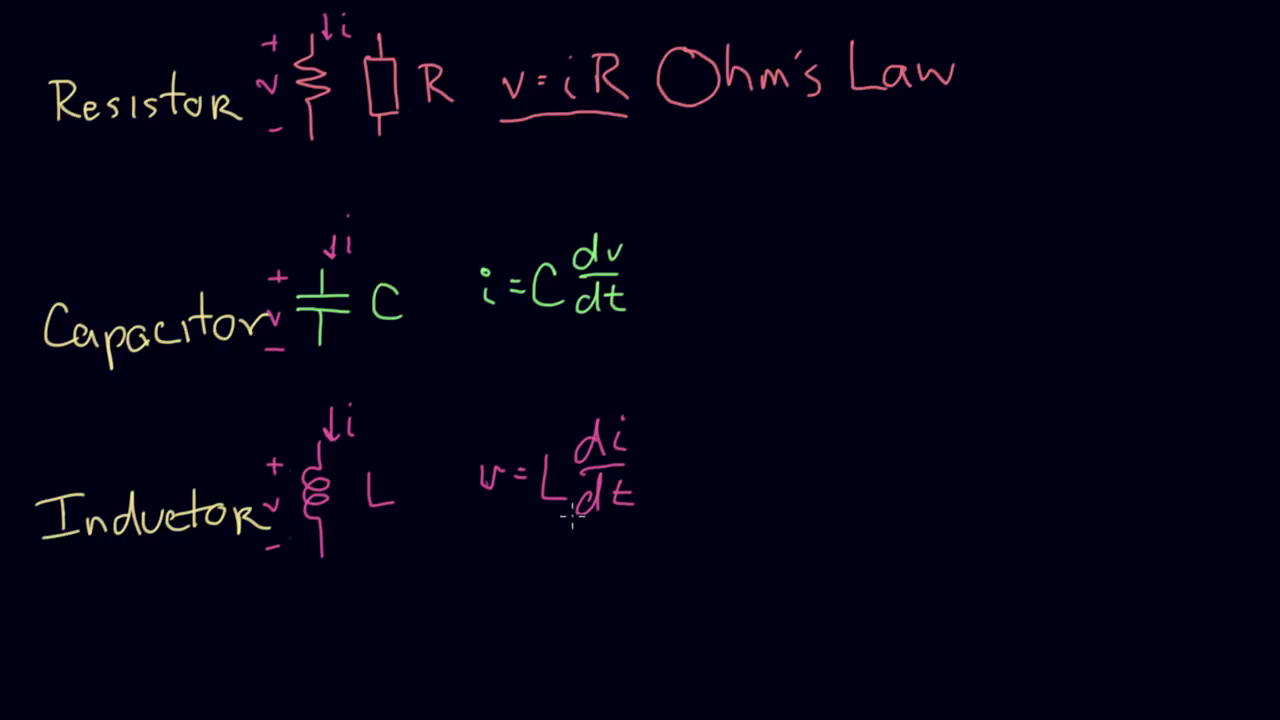 Resistor + v - i R v = i R Ohm's Law
Capacitor + v - i C i = C dv/dt
Inductor + v - i L v = L di/dt